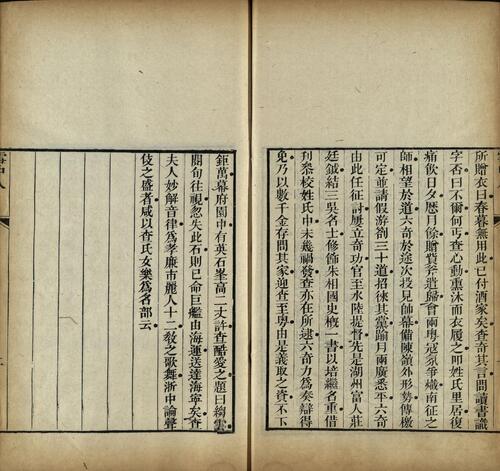 所贈衣曰春暮無用此已付酒家矣查奇其言問讀書識
字否曰不爾何丐查心動薰沐而衣履之叩姓氏里居復
痛飲日夕歷月餘贈貲斧遺歸會兩粵寇氛爭熾南征之
師相望於道六奇於途次投見師幕備陳嶺外形勢傳檄
可定並請假游劄三十道招徠其黨踰月兩廣悉平六奇
由此任征討屢立奇功官至水陸提督先是湖州富人莊
廷鉞結三吳名士修飾朱相國史槪一書以培繼名重借
刋叅校姓氏中未幾禍發查亦在所逮六奇力爲奏辯得
免乃以數千金存問其家迎查至粤由是義取之資不下
鉅萬幕府園中有英石峯高二丈許查酷愛之題曰縐雲
閱旬往視忽失此石則已命巨艦由海運送達海寧矣查
夫人妙解音律爲孝廉市麗人十二敎之歌舞浙中論聲
伎之盛者咸以查氏女樂爲名部云